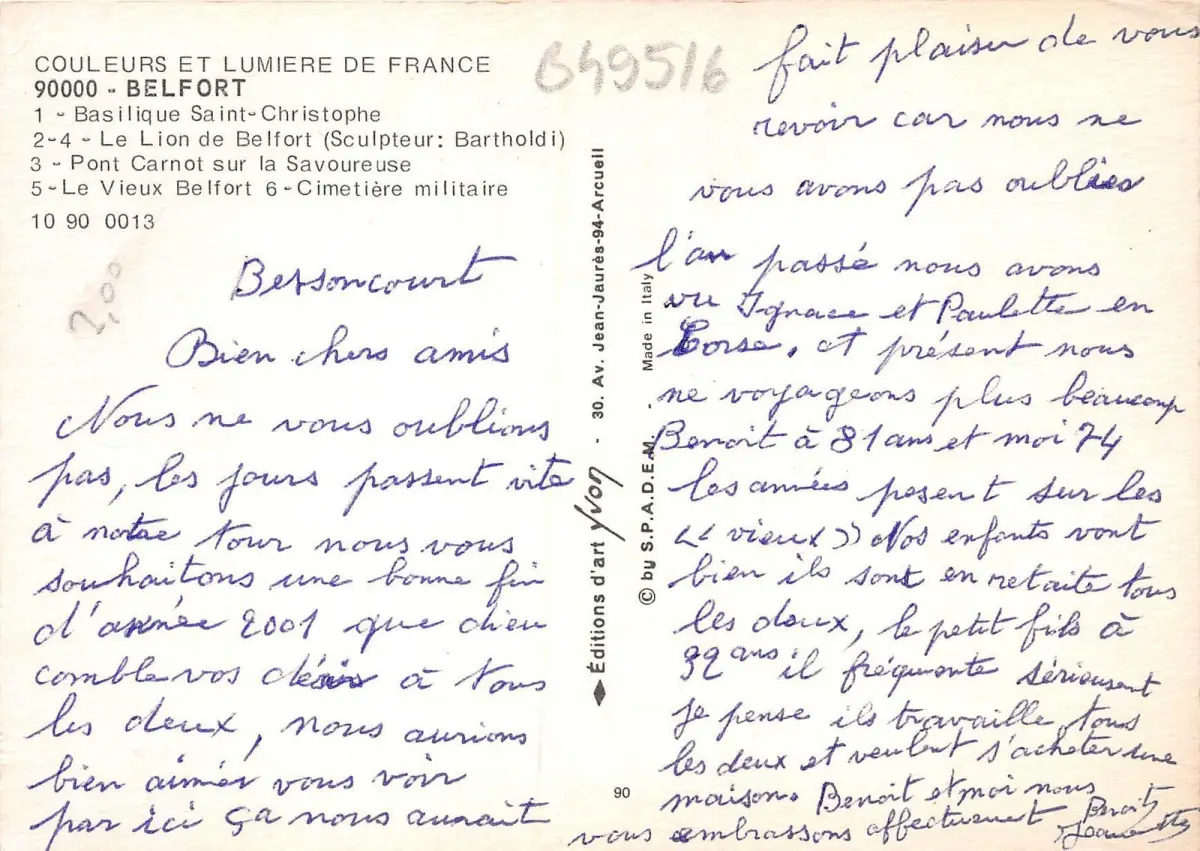 COULEURS ET LUMIERE DE FRANCE
90000 - BELFORT
1 - Basilique Saint-Christophe
2-4 - Le Lion de Belfort (Sculpteur: Bartholdi)
3 - Pont Carnot sur la Savoureuse
5-Le Vieux Belfort 6-Cimetière militaire
10 90 0013
B495/6
2,00
Bessoncourt
Bien chers amis
Nous ne vous oublions
pas, les jours passent vite
à notre tour nous vous
souhaitons une bonne fin
d'année 2001 que dieu
comble vos désirs à tous
les deux, nous aurions
bien aimer vous voir
par ici ça nous aurait
Éditions d'art Yvon - 30. Av. Jean-Jaurès-94-Arcueil
© by S.P.A.D.E.M. - Made in Italy
90
fait plaisir de vous
revoir car nous ne
vous avons pas oubliés
l'an passé nous avons
vu Ignace et Paulette en
Corse, et présent nous
ne voyageons plus beaucoup
Benoit à 81 ans et moi 74
les années pesent sur les
<< vieux >> Nos enfants vont
bien ils sont en retaite tous
les deux, le petit fils à
32 ans il fréquente sérieusent
je pense ils travaille tous
les deux et veulent s'acheter une
maison. Benoit et moi nous
vous embrassons affectueusent Benoit